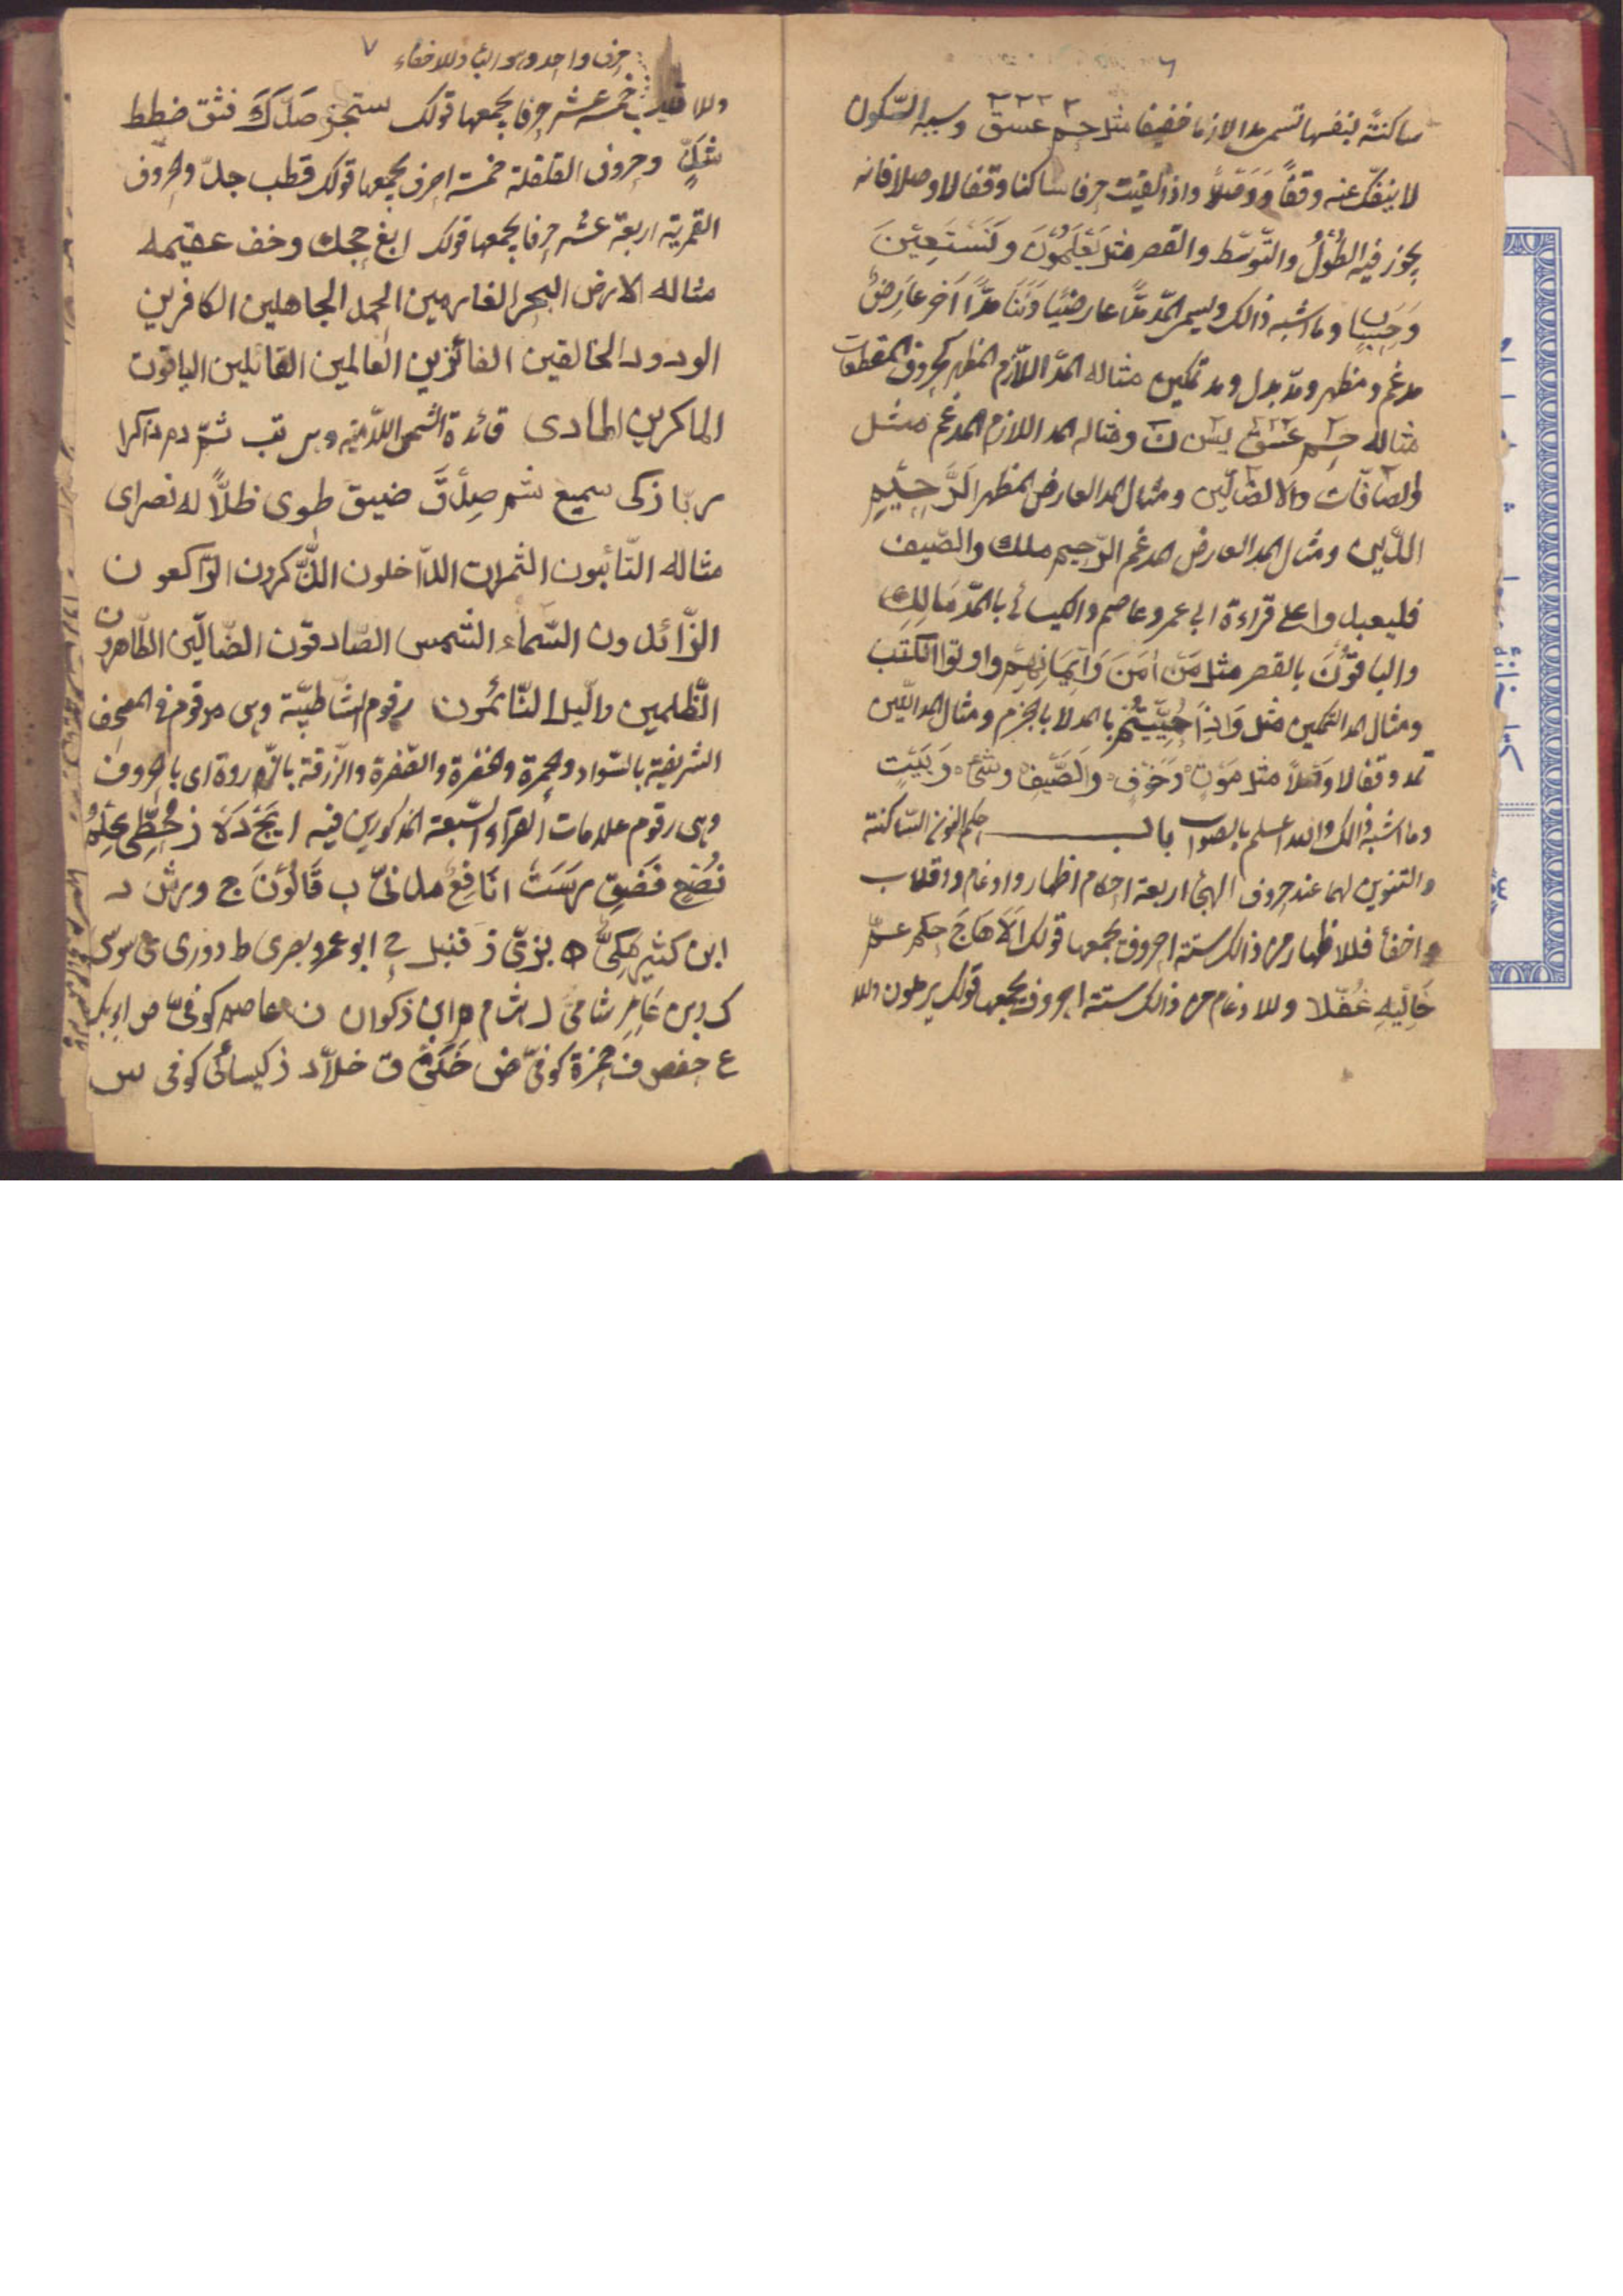 ساكنة لنفسها تسمى مدا لازما خفيفا مثل حٓم عٓسٓقٓ وسببه السّكون
لا ينفكّ عنه وقفاً وَوَصْلاً واذا لقيت حرفا ساكنا وقفا لا وصلا فانه
يجوز فيه الطُوْلُ والتّوسّط والقصر مثل يَعْلَمُوْنَ ونَسْتَعِيْنَ
وما اشبه ذالك ويسمى المدّ مدّا عارضيّا مدّاً آخر عَارِضٌ
مدغم ومظهر ومدّ بدل ومد تمكين مثاله المدّ اللّازم المظهر بحروف المقطعات
مثاله حٓم عٓسٓقٓ يٰسٓ نٓ ومثاله المد اللازم المدغم مثل
والصآفّات ولا الضآلّين ومثال المد العارض المظهر الرَّحِيْمِ
الدّين ومثال المد العارض المدغم الرّحيم ملك والصّيف
فليعبدوا على قراءة ابى عمرو عاصم والكيسائى بالمدّ مَالِكِ
والباقُوْنَ بالقصر مثل مَنْ اٰمَنَ وَاِيْمَانِهِمْ واوتوا الكتب
ومثال المد التمكين مثل وَاِذَا حُيِّيْتُمْ بالمد لا بالجزم ومثال المد اللّين
تمد وقفا لا وَصْلاً مثل مَوْتٍ وَخَوْفٍ والصَّيْفِ وشَئٍ وَبَيْتٍ
وما اشبه ذالك والله اعلم بالصواب باب حكم النون السّاكنة
والتنوين لهما عند حروف الهجى اربعة احكام اظهار وادغام واقلاب
واخفأ فللاظهار من ذالك ستة احروف يجمعها قولك اَلَا هَاجَ حكم عمّ
خَالِيْهِ غُفّلا وللادغام من ذالك ستة احروف يجمعها قولك يرملون وللا
٧
حرف واحد وهو الباء وللاخفاء
وللاقلاب خمسة عشر حرفا يجمعها قولك ستجز صَدَّكَ فثق ضطط
شَكٍّ وحروف القلقلة خمسة احرف يجمعها قولك قطب جدّ والحروف
القمرية اربعة عشر حرفا يجمعها قولك ابغ حجك وخف عقيمه
مثاله الارض البحر الغارمين الحمد الجاهلين الكافرين
الودود الخالقين الفائزين العالمين القائلين الياقوت
الماكرين الهادى قائدة الشمس اللّامية وس تب ثمّ دم ذاكرا
ربّا زكى سميع شم صِدْقَ ضيق طوى ظلّاً له نصراى
مثاله التّائبون الثمرات الدّاخلون الذّكرون الرّاكعون
الزّائدون السّماء الشمس الصّادقون الضّالّين الطّاهرون
الظّلمين والّيل النّائمون رقوم الشّاطبيّة وهى مرقوم فى المصحف
الشريفية بالسّواد والحمرة والخضرة والصّفرة والزّرقة اى بالحروف
وهى رقوم علامات القرآء السّبعة المذكورين فيه ابَجْ دَهَزْ حُطِّى كَلَمْ
نَصَعْ فَضَقْ رَسَتْ ا نَافِعْ مدنىّ ب قَالُوْنَ ج ورش د
ابن كثير مَكِىٌّ ه بزىّ ز قنبل ح ابو عمرو بصرى ط دورى ى سوسى
ك ابن عَامِر شامىّ ل هشام م ابن ذكوان ن عاصم كوفىّ ص ابوبكر
ع حفص ف حمزة كوفىّ ض خَلَفْ ق خلّاد ر كيسائى كوفى س